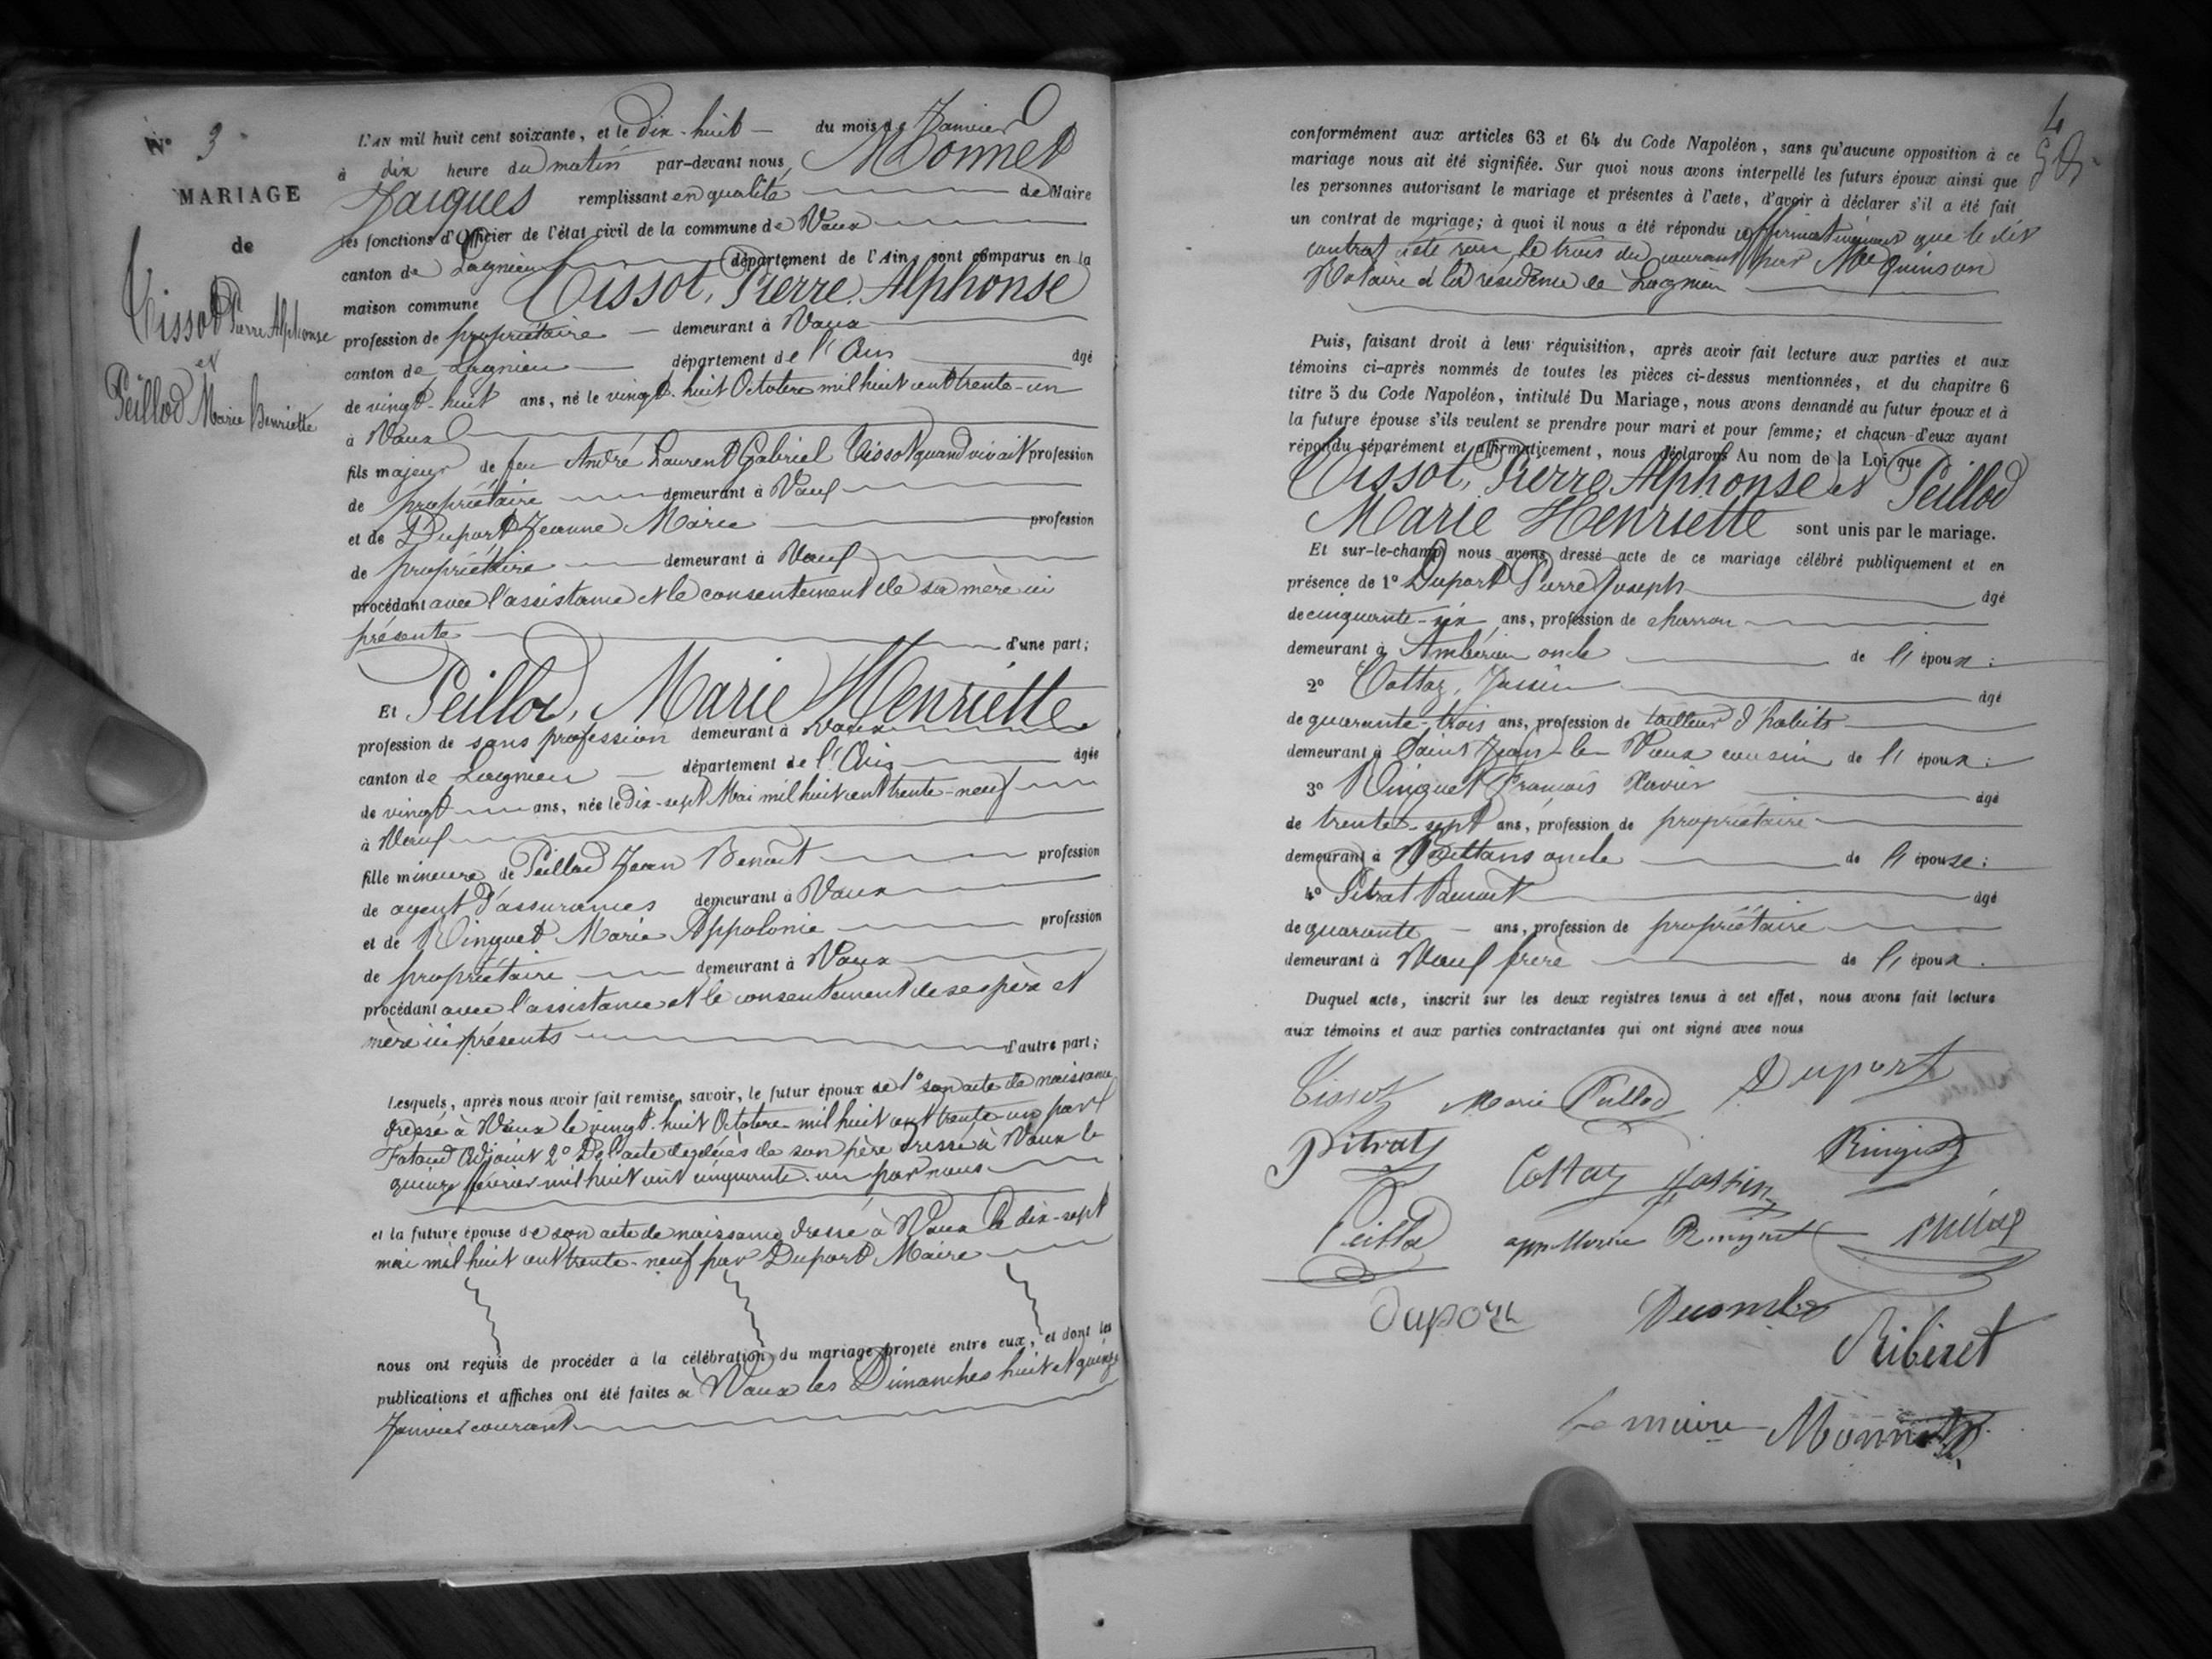 N° 3
MARIAGE
de
Tissot Pierre Alphonse
et
Peillod Marie Henriette
L'AN mil huit cent soixante, et le Dix-huit du mois de Janvier
à dix heure du matin par-devant nous, Monnet
Jacques remplissant en qualité de Maire
les fonctions d'Officier de l'état civil de la commune de Vaux
canton de Lagnieu département de l'Ain sont comparus en la
maison commune Tissot, Pierre Alphonse
profession de propriétaire demeurant à Vaux
canton de Lagnieu département de l'Ain âgé
de vingt-huit ans, né le vingt-huit Octobre mil huit cent trente-un
à Vaux
fils majeur de feu André Laurent Gabriel Tissot quand vivait profession
de propriétaire demeurant à Vaux
et de Duport Jeanne Marie profession
de propriétaire demeurant à Vaux
procédant avec l'assistance et le consentement de sa mère ici
présente d'une part;
Et Peillod, Marie Henriette
profession de sans profession demeurant à Vaux
canton de Lagnieu département de l'Ain âgée
de vingt ans, née le Dix-sept Mai mil huit cent trente-neuf
à Vaux
fille mineure de Peillod Jean Benoit profession
de agent d'assurances demeurant à Vaux
et de Ringuet Marie Appolonie profession
de propriétaire demeurant à Vaux
procédant avec l'assistance et le consentement de ses père et
mère ici présents d'autre part;
Lesquels, après nous avoir fait remise, savoir, le futur époux de 1° son acte de naissance
dressé à Vaux le vingt-huit Octobre mil huit cent trente-un par
Adjoint 2° De l'acte de décès de son père dressé à Vaux le
quinze février mil huit cent cinquante-un par nous
et la future épouse de son acte de naissance dressé à Vaux le dix-sept
mai mil huit cent trente-neuf par Duport Maire
nous ont requis de procéder à la célébration du mariage projeté entre eux, et dont les
publications et affiches ont été faites à Vaux les Dimanches huit et quinze
Janvier courant
4
conformément aux articles 63 et 64 du Code Napoléon, sans qu'aucune opposition à ce
mariage nous ait été signifiée. Sur quoi nous avons interpellé les futurs époux ainsi que
les personnes autorisant le mariage et présentes à l'acte, d'avoir à déclarer s'il a été fait
un contrat de mariage; à quoi il nous a été répondu affirmativement que le dit
contrat a été reçu le trois du courant par Me Quinson
Notaire à la résidence de Lagnieu
Puis, faisant droit à leur réquisition, après avoir fait lecture aux parties et aux
témoins ci-après nommés de toutes les pièces ci-dessus mentionnées, et du chapitre 6
titre 5 du Code Napoléon, intitulé Du Mariage, nous avons demandé au futur époux et à
la future épouse s'ils veulent se prendre pour mari et pour femme; et chacun d'eux ayant
répondu séparément et affirmativement, nous déclarons Au nom de la Loi que
Tissot, Pierre Alphonse et Peillod
Marie Henriette sont unis par le mariage.
Et sur-le-champ nous avons dressé acte de ce mariage célébré publiquement et en
présence de 1° Duport Pierre Joseph âgé
de cinquante-six ans, profession de charron
demeurant à Ambérieu oncle de l'époux;
2° Cottaz, Jassin âgé
de quarante-trois ans, profession de tailleur d'habits
demeurant à Saint Jean-le-Vieux cousin de l'époux;
3° Ringuet François Xavier âgé
de trente-sept ans, profession de propriétaire
demeurant à Bettans oncle de l'épouse;
4° Pitrat Benoit âgé
de quarante ans, profession de propriétaire
demeurant à Vaux frère de l'époux.
Duquel acte, inscrit sur les deux registres tenus à cet effet, nous avons fait lecture
aux témoins et aux parties contractantes qui ont signé avec nous
Tissot Marie Peillod Duport
Pitrat Cottaz Jassin Ringuet
Peillod Ringuet Peillod
Duport Ribiset
Le maire Monnet